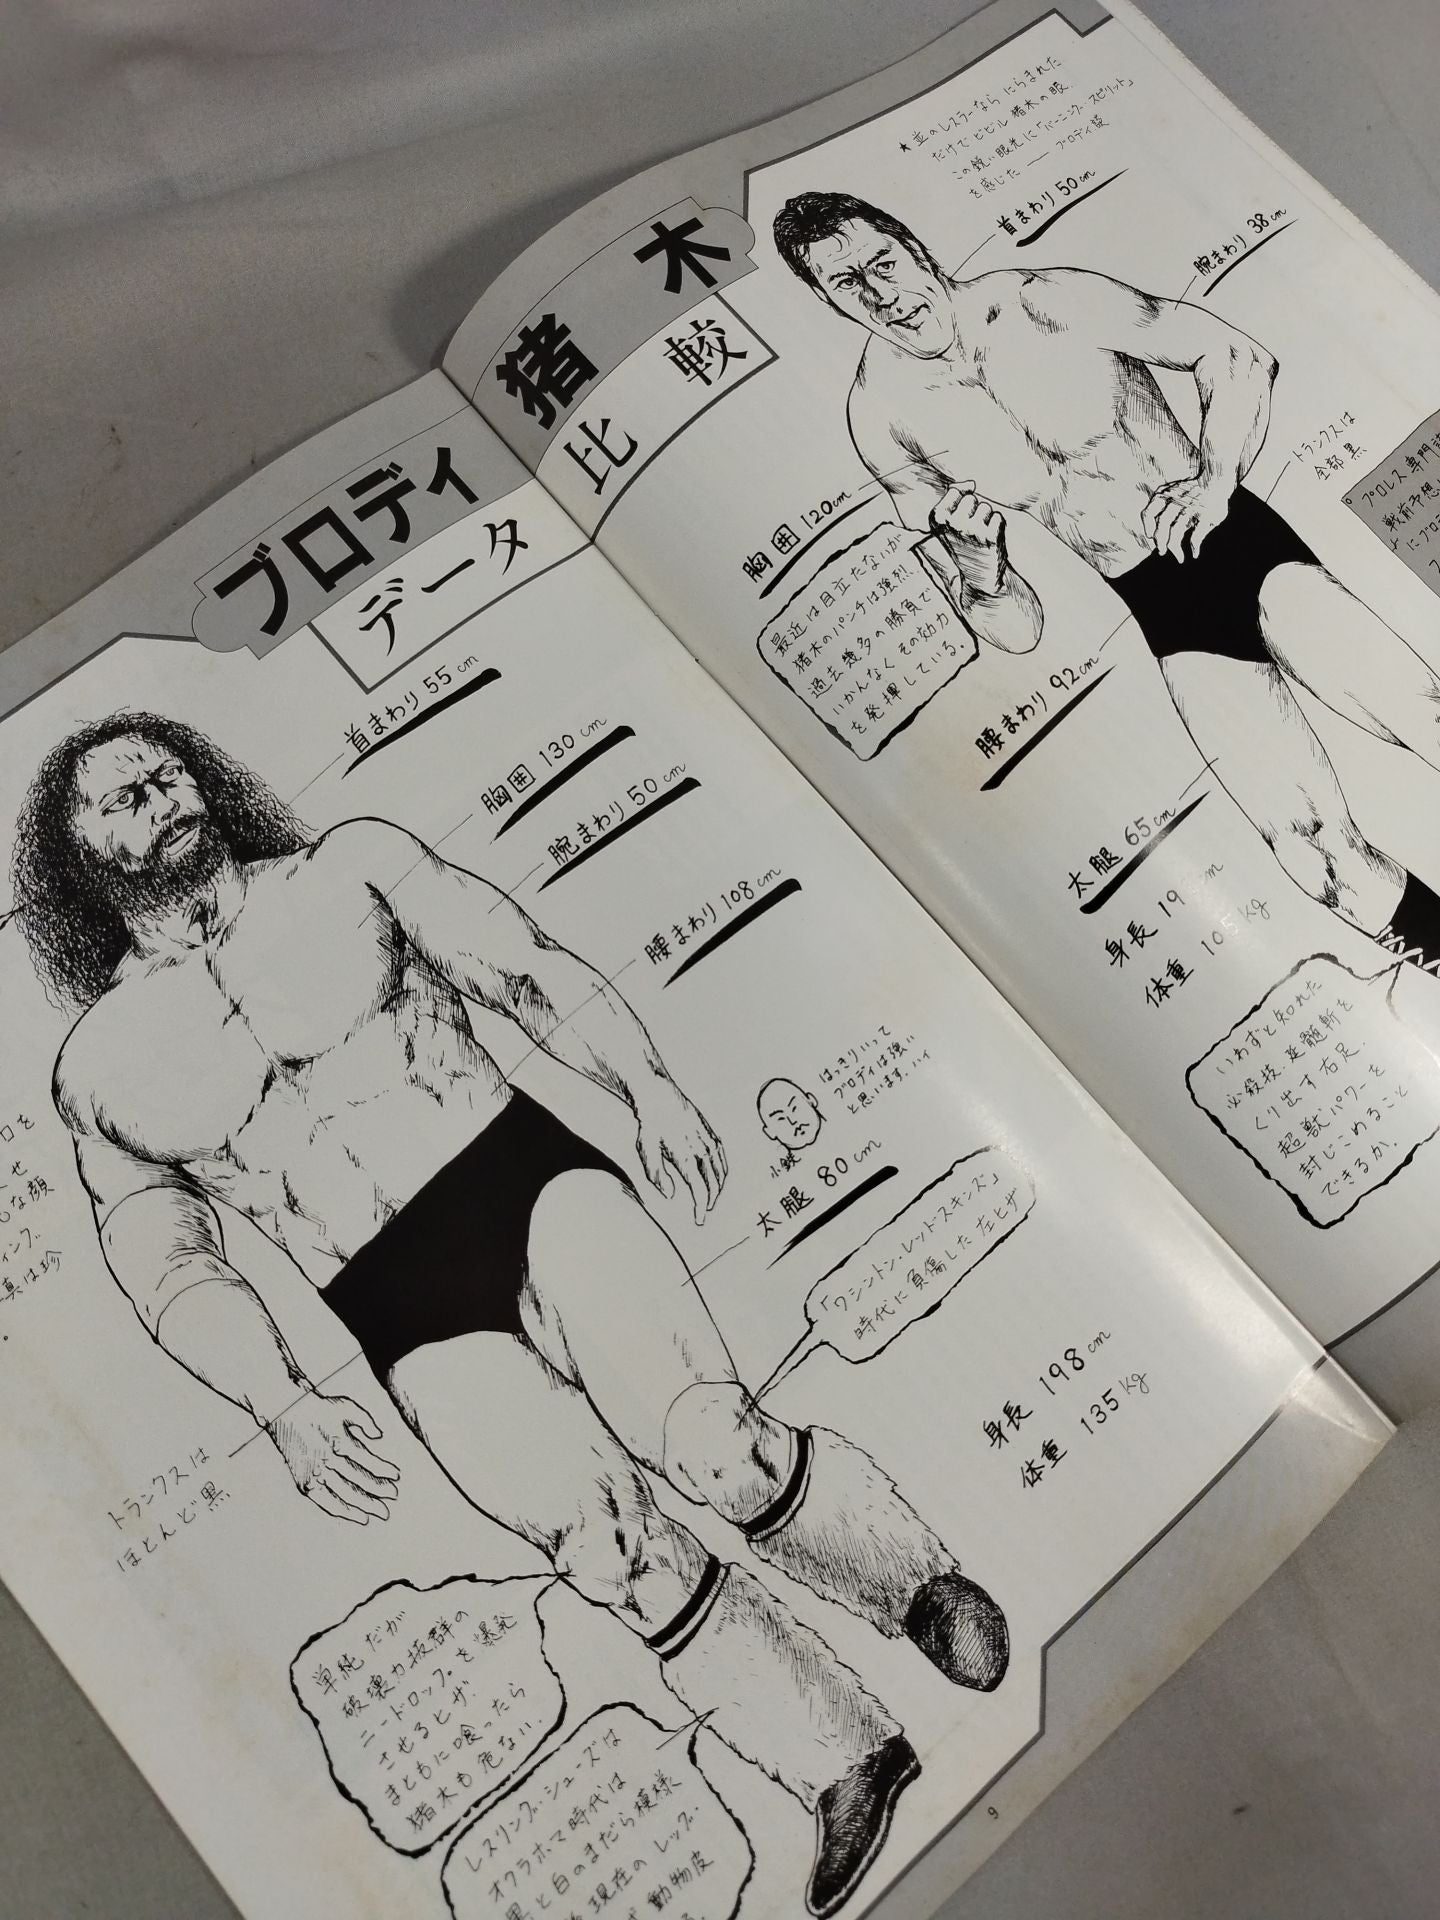 ブロディ 猪木
データ比較
首まわり 55cm
胸囲 130cm
腕まわり 50cm
腰まわり 108cm
はっきりいって
ブロディは強い
と思います.ハイ
小鉄
太腿 80cm
「ワシントン・レッドスキンズ」
時代に負傷した左ヒザ
身長 198cm
体重 135kg
トランクスは
ほとんど黒
単純だが
破壊力抜群の
ニードロップを爆発
させるヒザ.
まともに喰ったら
猪木も危ない.
レスリング・シューズは
オクラホマ時代は
黒と白のまだら模様
現在のレッグ・
動物皮
ロを
せ
な顔
ィング
真は珍
★並のレスラーなら にらまれた
だけでビビル 猪木の眼.
この鋭い眼光に「バーニング・スピリット」
を感じた —— ブロディ談
首まわり 50cm
腕まわり 38cm
トランクスは
全部黒
胸囲 120cm
最近は目立たないが
猪木のパンチは強烈.
過去幾多の勝負で
いかんなくその効力
を発揮している。
腰まわり 92cm
太腿 65cm
身長 19 cm
体重 105kg
いわずと知れた
必殺技・延髄斬を
くり出す右足.
超獣パワーを
封じこめること
できるか.
プロレス専門
戦前予想
にブロデ
9